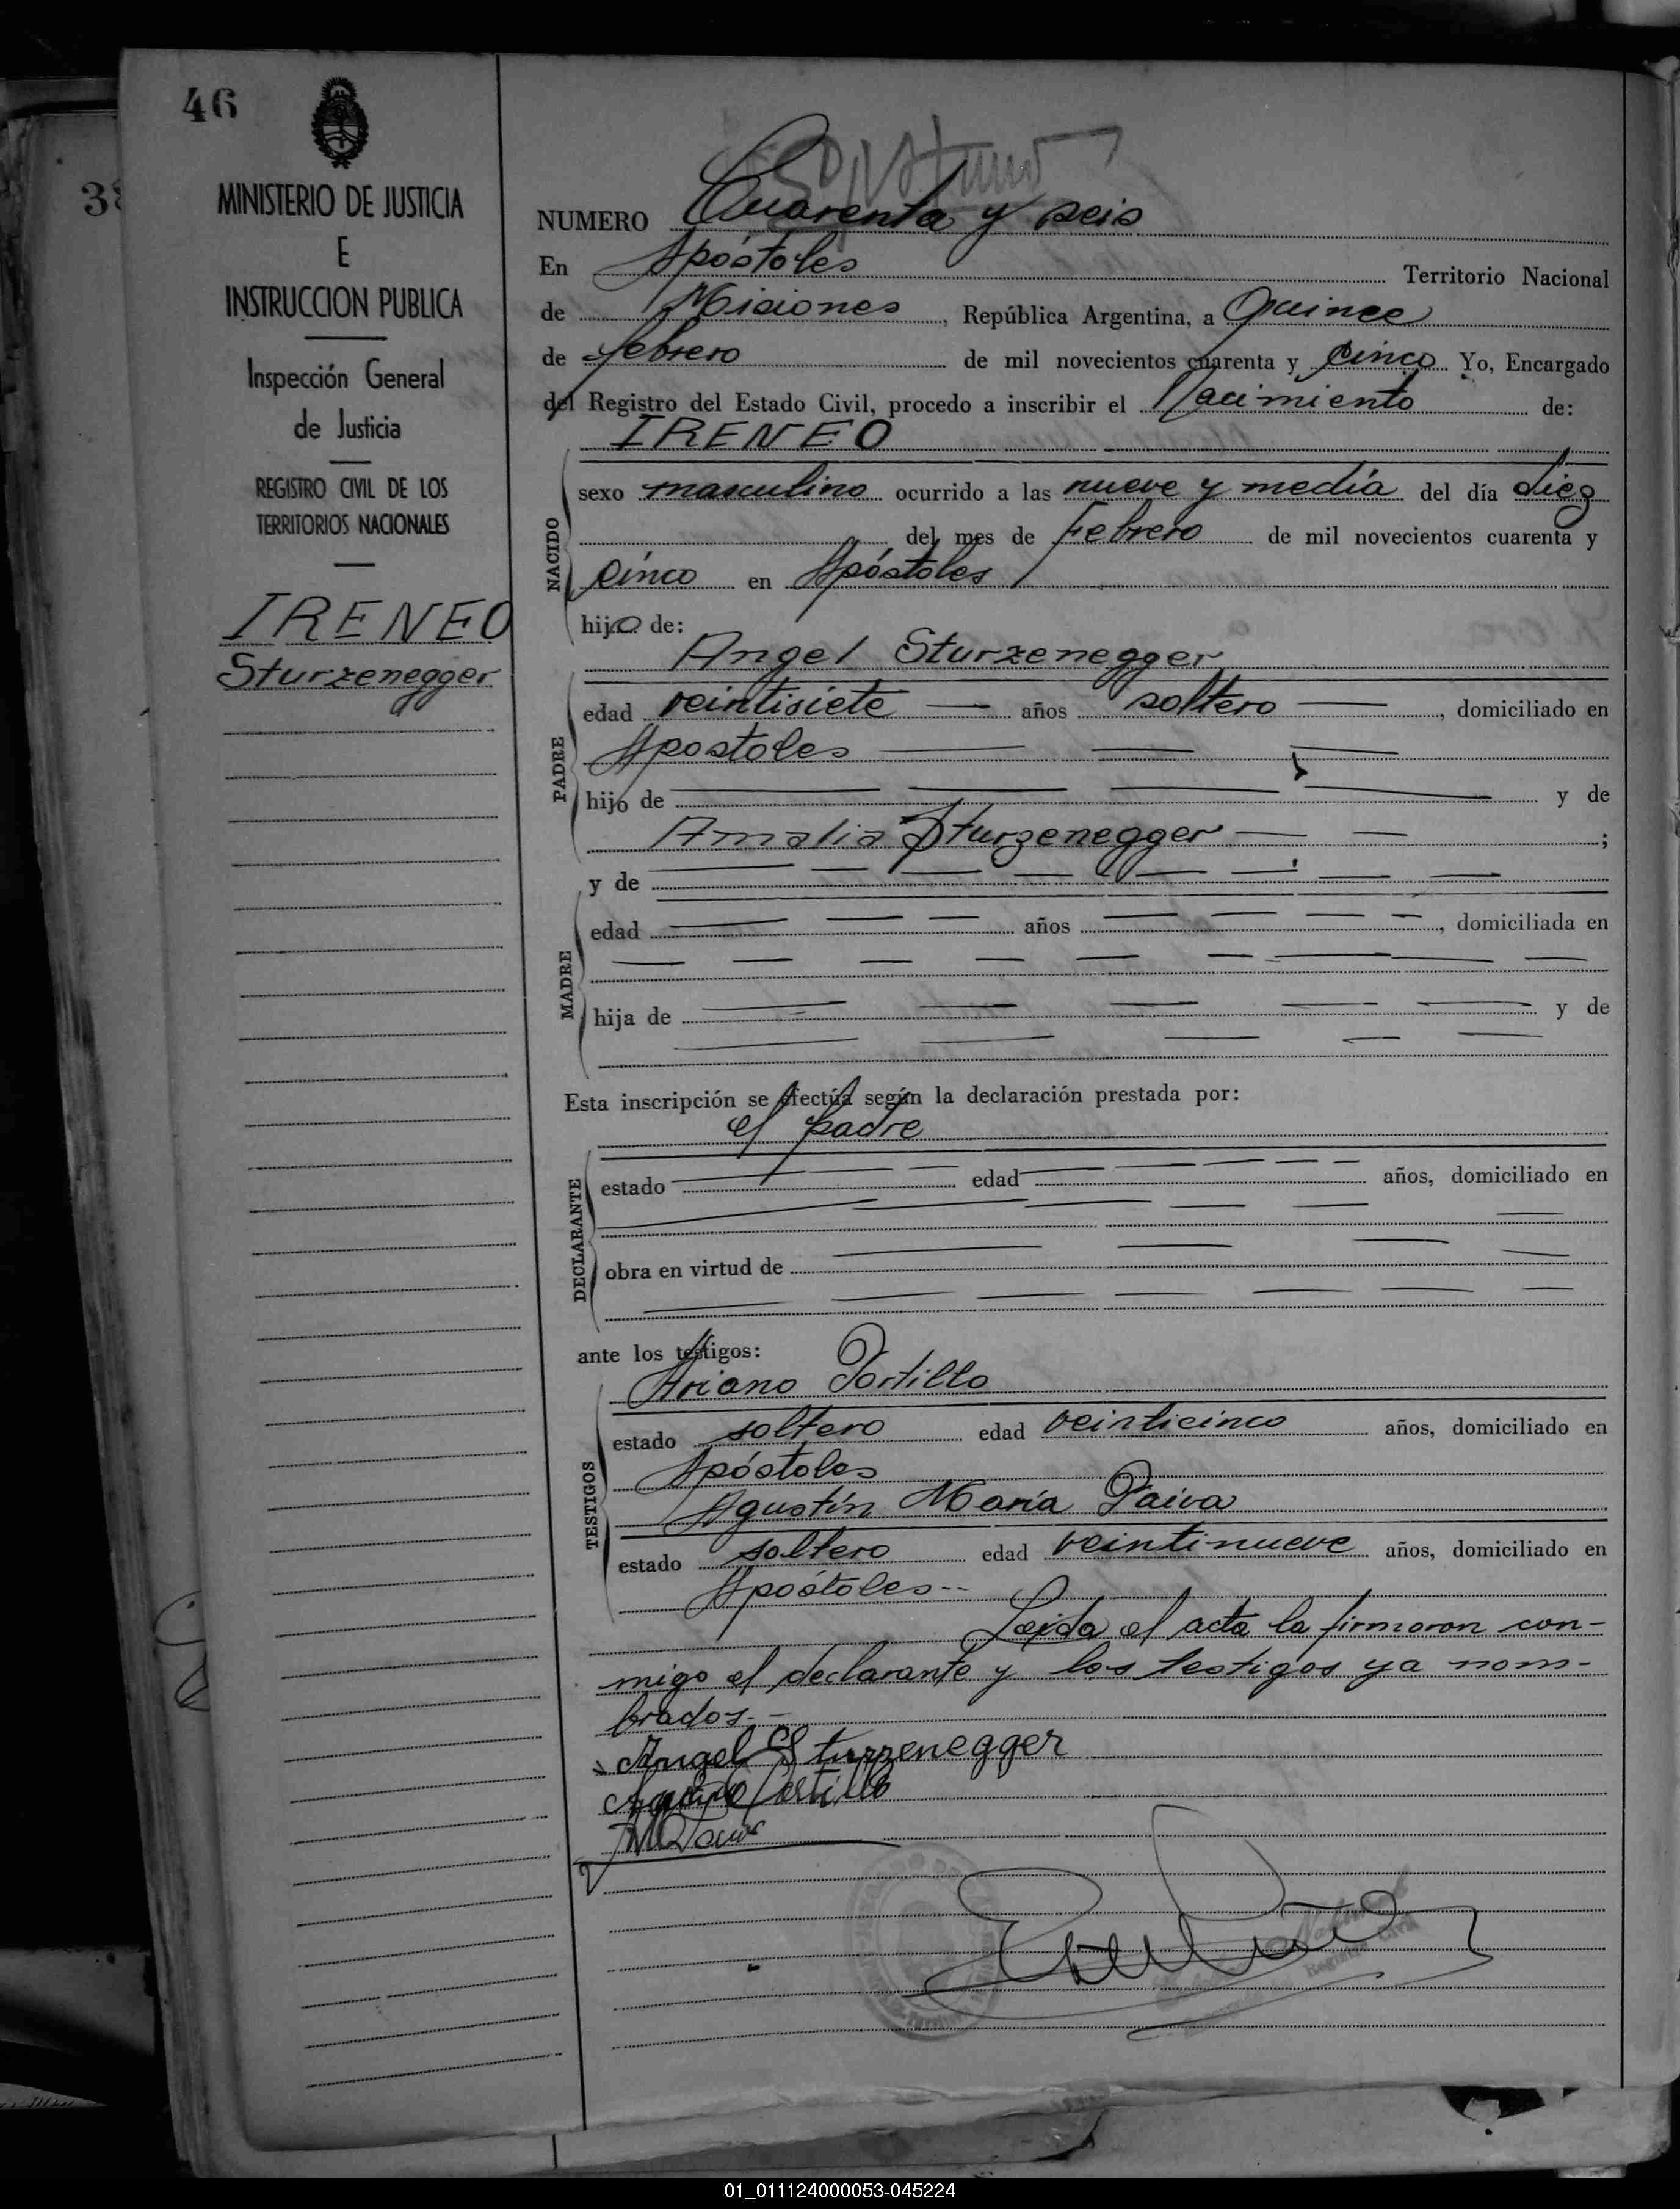 46
38
MINISTERIO DE JUSTICIA
E
INSTRUCCION PUBLICA
Inspección General
de Justicia
REGISTRO CIVIL DE LOS
TERRITORIOS NACIONALES
IRENEO
Sturzenegger
NUMERO Cuarenta y seis
En Apóstoles Territorio Nacional
de Misiones, República Argentina, a Quince
de febrero de mil novecientos cuarenta y cinco Yo, Encargado
del Registro del Estado Civil, procedo a inscribir el Nacimiento de:
IRENEO
NACIDO
sexo masculino ocurrido a las nueve y media del día diez
del mes de Febrero de mil novecientos cuarenta y
cinco en Apóstoles
hijo de:
Angel Sturzenegger
PADRE
edad veintisiete años soltero, domiciliado en
Apostoles
hijo de y de
Amalia Sturzenegger ;
y de
MADRE
edad años , domiciliada en
hija de y de
Esta inscripción se efectúa según la declaración prestada por:
el padre
DECLARANTE
estado edad años, domiciliado en
obra en virtud de
ante los testigos:
Ariano Portillo
TESTIGOS
estado soltero edad veinticinco años, domiciliado en
Apóstoles
Agustín María Paiva
estado soltero edad veintinueve años, domiciliado en
Apóstoles--
Leida el acta la firmaron con-
migo el declarante y los testigos ya nom-
brados.-
Angel Sturzenegger
Portillo
01_011124000053-045224